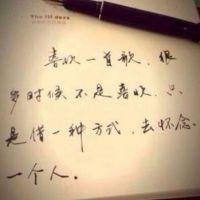 The ill dess
喜欢一首歌，很
多时候不是喜欢，只
是借一种方式，去怀念
一个人。